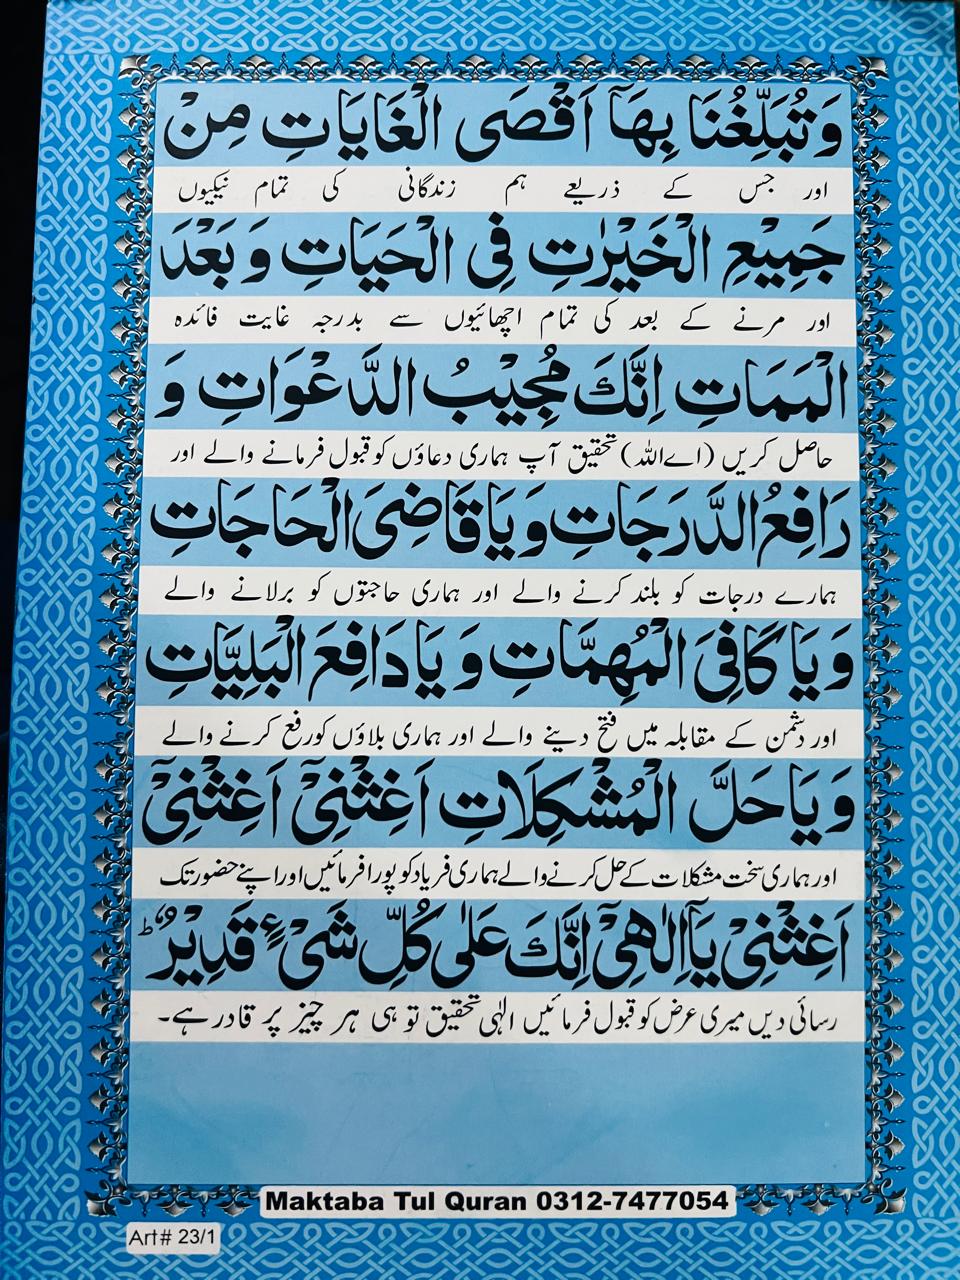 وَتُبَلِّغُنَا بِهَآ اَقْصَى الْغَايَاتِ مِنْ
اور جس کے ذریعے ہم زندگانی کی تمام نیکیوں
جَمِيْعِ الْخَيْرٰتِ فِى الْحَيَاتِ وَبَعْدَ
اور مرنے کے بعد کی تمام اچھائیوں سے بدرجہ غایت فائدہ
الْمَمَاتِ اِنَّكَ مُجِيْبُ الدَّعْوَاتِ وَ
حاصل کریں (اے اللہ) تحقیق آپ ہماری دعاؤں کو قبول فرمانے والے اور
رَافِعُ الدَّرَجَاتِ وَيَا قَاضِىَ الْحَاجَاتِ
ہمارے درجات کو بلند کرنے والے اور ہماری حاجتوں کو برلانے والے
وَيَا كَافِىَ الْمُهِمَّاتِ وَيَا دَافِعَ الْبَلِيَّاتِ
اور دشمن کے مقابلہ میں فتح دینے والے اور ہماری بلاؤں کو رفع کرنے والے
وَيَا حَلَّ الْمُشْكِلَاتِ اَغِثْنِىْٓ اَغِثْنِىْٓ
اور ہماری سخت مشکلات کے حل کرنے والے ہماری فریاد کو پورا فرمائیں اور اپنے حضور تک
اَغِثْنِىْ يَآ اِلٰهِىْٓ اِنَّكَ عَلٰى كُلِّ شَىْءٍ قَدِيْرٌ ؕ
رسائی دیں میری عرض کو قبول فرمائیں الٰہی تحقیق تو ہی ہر چیز پر قادر ہے۔
Maktaba Tul Quran 0312-7477054
Art# 23/1